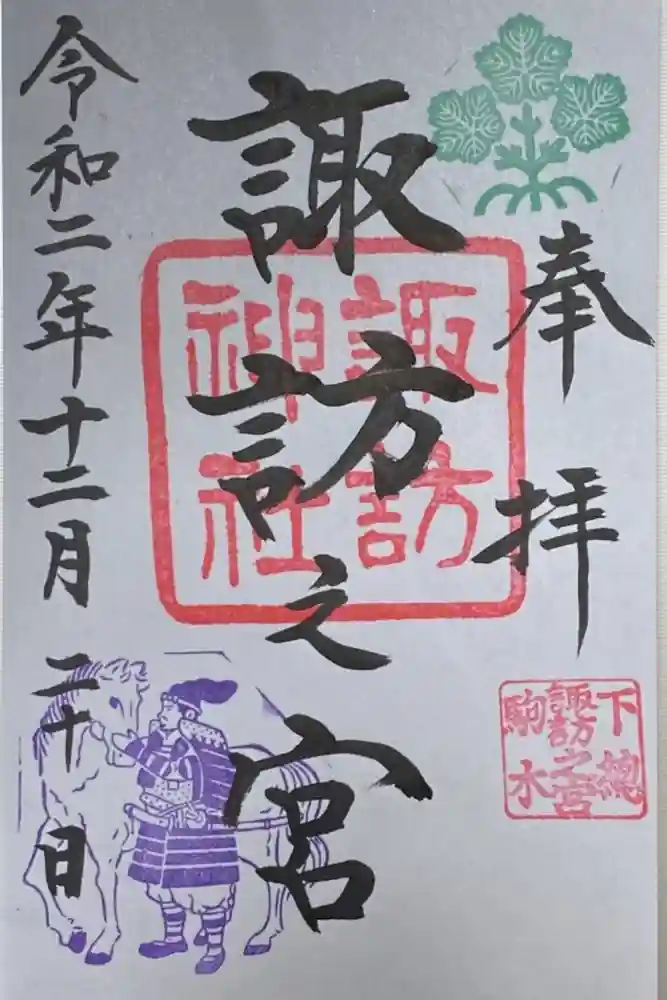 奉拝
諏訪之宮
諏訪
神社
下總
諏訪之宮
駒木
令和二年十二月二十日